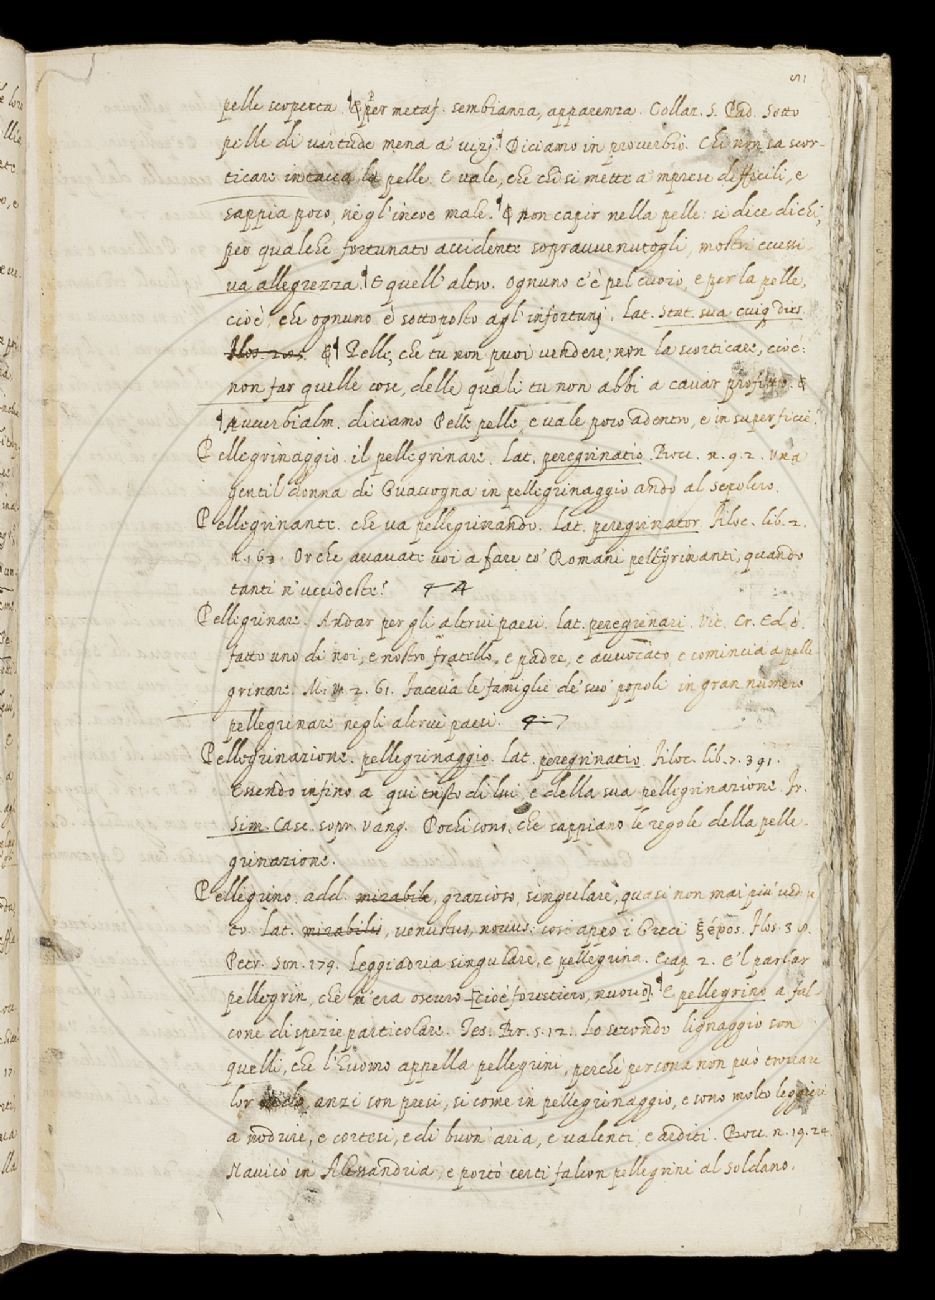 51
pelle scoperta. ¶ & per metaf. sembianza, apparenza. Collaz. S. Pad. Sotto
pelle di vertude mena a vizj. ¶ Diciamo in proverbio. Chi non sa scor-
ticare intacca la pelle. E vale, che chi si mette a 'mprese difficili, e
sappia poco, ne gl' incoe male. ¶ & non capir nella pelle: si dice di chi,
per qualche fortunato accidente sopravvenutogli, mostri eccessi-
va allegrezza. ¶ E quell' altro. Ognuno c'è pel cuoio, e per la pelle,
cioè, che ognuno è sottoposto agl' infortunj. Lat. Stat. sua cuiq dies.
¶ Pelle, che tu non puoi vendere, non la scorticare, cioè:
non far quelle cose, delle quali tu non abbi a cavar profitto. &
¶ pruverbialm. diciamo Pelle pelle, e vale poco adentro, e in superficie.
Pellegrinaggio. il pellegrinare. Lat. peregrinatio. Bocc. n. 9. 2. Una
gentil donna di Guascogna in pellegrinaggio andò al sepolcro.
Pellegrinante. che va pellegrinando. Lat. peregrinator. Filoc. lib. 2.
n. 163. Or che avavate voi a fare co' Romani pellegrinanti, quando
tanti n' uccideste?
Pellegrinare. Andar per gli altrui paesi. Lat. peregrinari. Vit. Cr. Ed è
fatto uno di noi, e nostro fratello, e padre, e avvocato, e comincia a pelle-
grinare. M. V. 2. 61. Faceva le famiglie de' suo' popoli in gran numero
pellegrinare negli altrui paesi.
Pellegrinazione. pellegrinaggio. Lat. peregrinatio. Filoc. lib. 7. 391.
Essendo infino a qui tristo di lui, e della sua pellegrinazione. Fr.
Sim. Casc. sopr. Vang. Pochi sono, che sappiano le regole della pelle-
grinazione.
Pellegrino. add. mirabile, grazioso, singulare, quasi non mai più vedu-
to. Lat. mirabilis, venustus, novus: così appo i Greci ξένος. Flos. 39.
Petr. Son. 179. Leggiadria singulare, e pellegrina. E cap. 2. E 'l parlar
pellegrin, che m'era oscuro [cioè forestiero, nuovo]. ¶ E pellegrino a fal-
cone di spezie particolare. Tes. Br. 5. 12. Lo secondo lignaggio son
quelli, che l' huomo appella pellegrini, perchè persona non può trovare
lor nido, anzi son presi, sì come in pellegrinaggio, e sono molto leggieri
a nodrire, e cortesi, e di buon' aria, e valenti, e arditi. Bocc. n. 19. 24.
Navicò in Alessandria, e portò certi falcon pellegrini al Soldano.